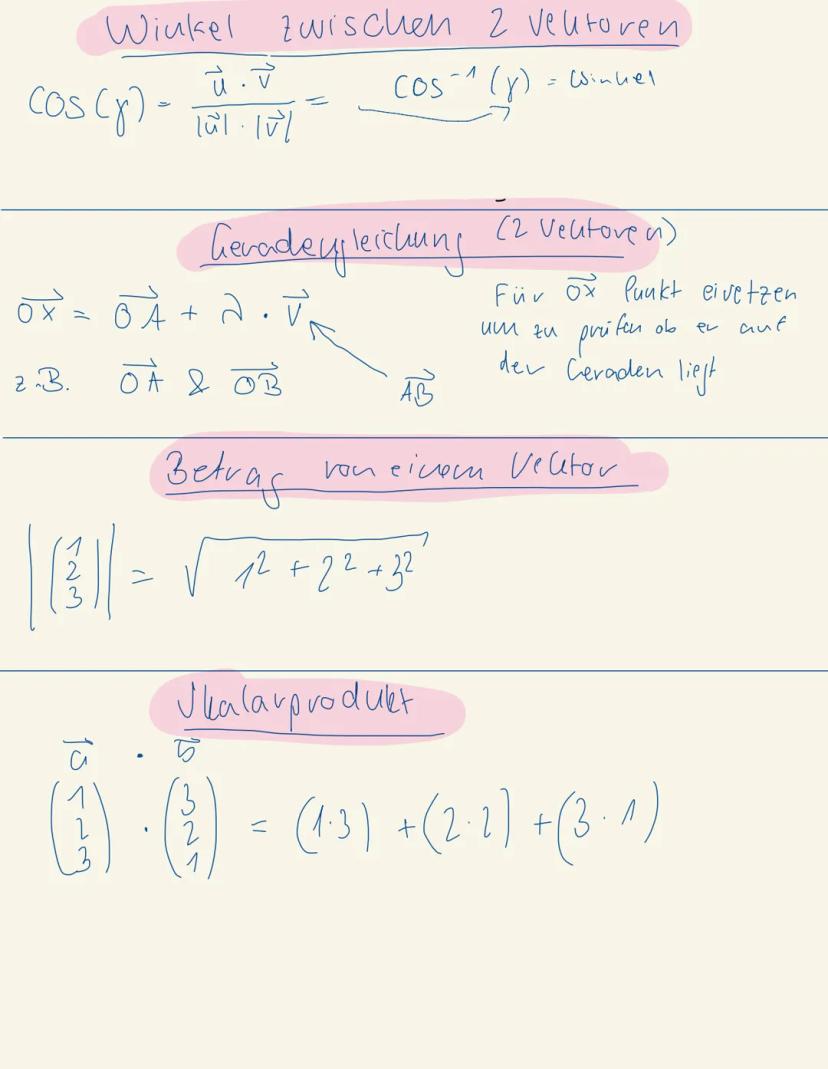 Winkel zwischen 2 Vektoren
cos(γ) = u⃗ · v⃗ / |u⃗| · |v⃗| = cos⁻¹(γ) = Winkel
Geradengleichung (2 Vektoren)
OX⃗ = OA⃗ + λ · v⃗
z.B. OA⃗ & OB⃗
AB⃗
Für OX⃗ Punkt eivetzen
um zu prüfen ob er auf
der Geraden liegt
Betrag von einem Vektor
|(1 2 3)| = √1² + 2² + 3²
Skalarprodukt
a⃗ · b⃗
(1 2 3) · (3 2 1) = (1·3) + (2·2) + (3·1)